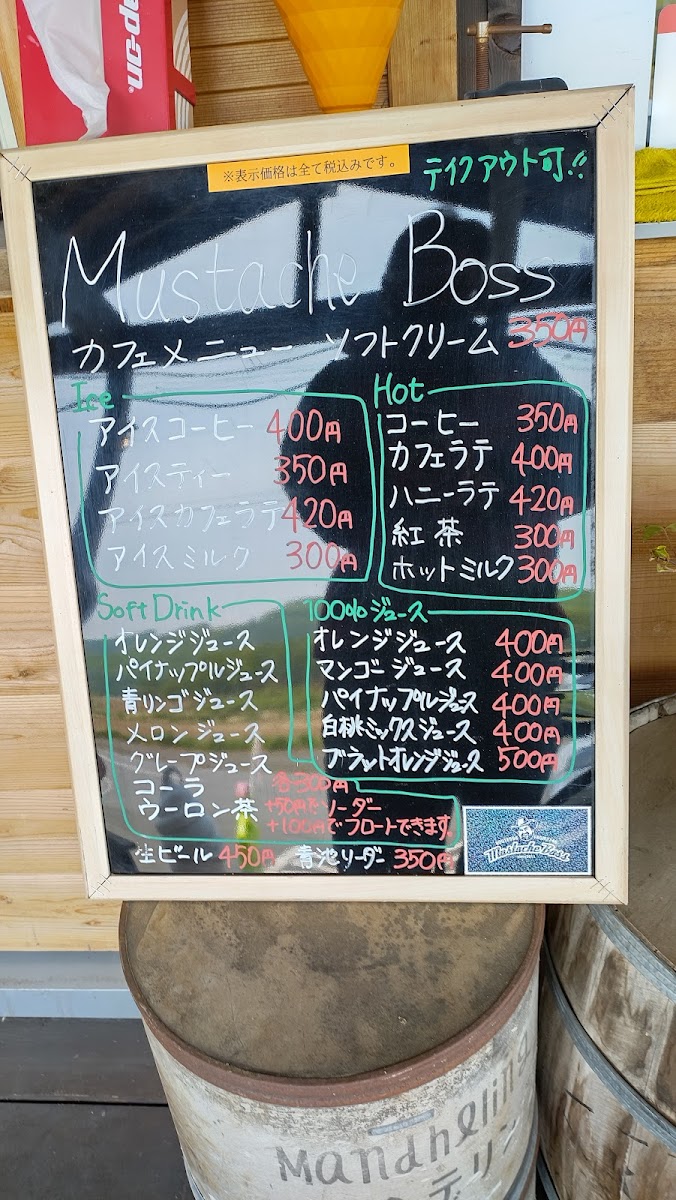 ap-on
※表示価格は全て税込みです。
テイクアウト可!!
Mustache Boss
カフェメニュー ソフトクリーム 350円
Ice
アイスコーヒー 400円
アイスティー 350円
アイスカフェラテ 420円
アイスミルク 300円
Hot
コーヒー 350円
カフェラテ 400円
ハニーラテ 420円
紅茶 300円
ホットミルク 300円
Soft Drink
オレンジジュース
パイナップルジュース
青リンゴジュース
メロンジュース
グレープジュース
コーラ 各300円
ウーロン茶 +50円でソーダー
+100円でフロートできます。
100%ジュース
オレンジジュース 400円
マンゴージュース 400円
パイナップルジュース 400円
白桃ミックスジュース 400円
ブラットオレンジジュース 500円
生ビール 450円 青池ソーダー 350円
Mustache Boss
Mandheling
テリン